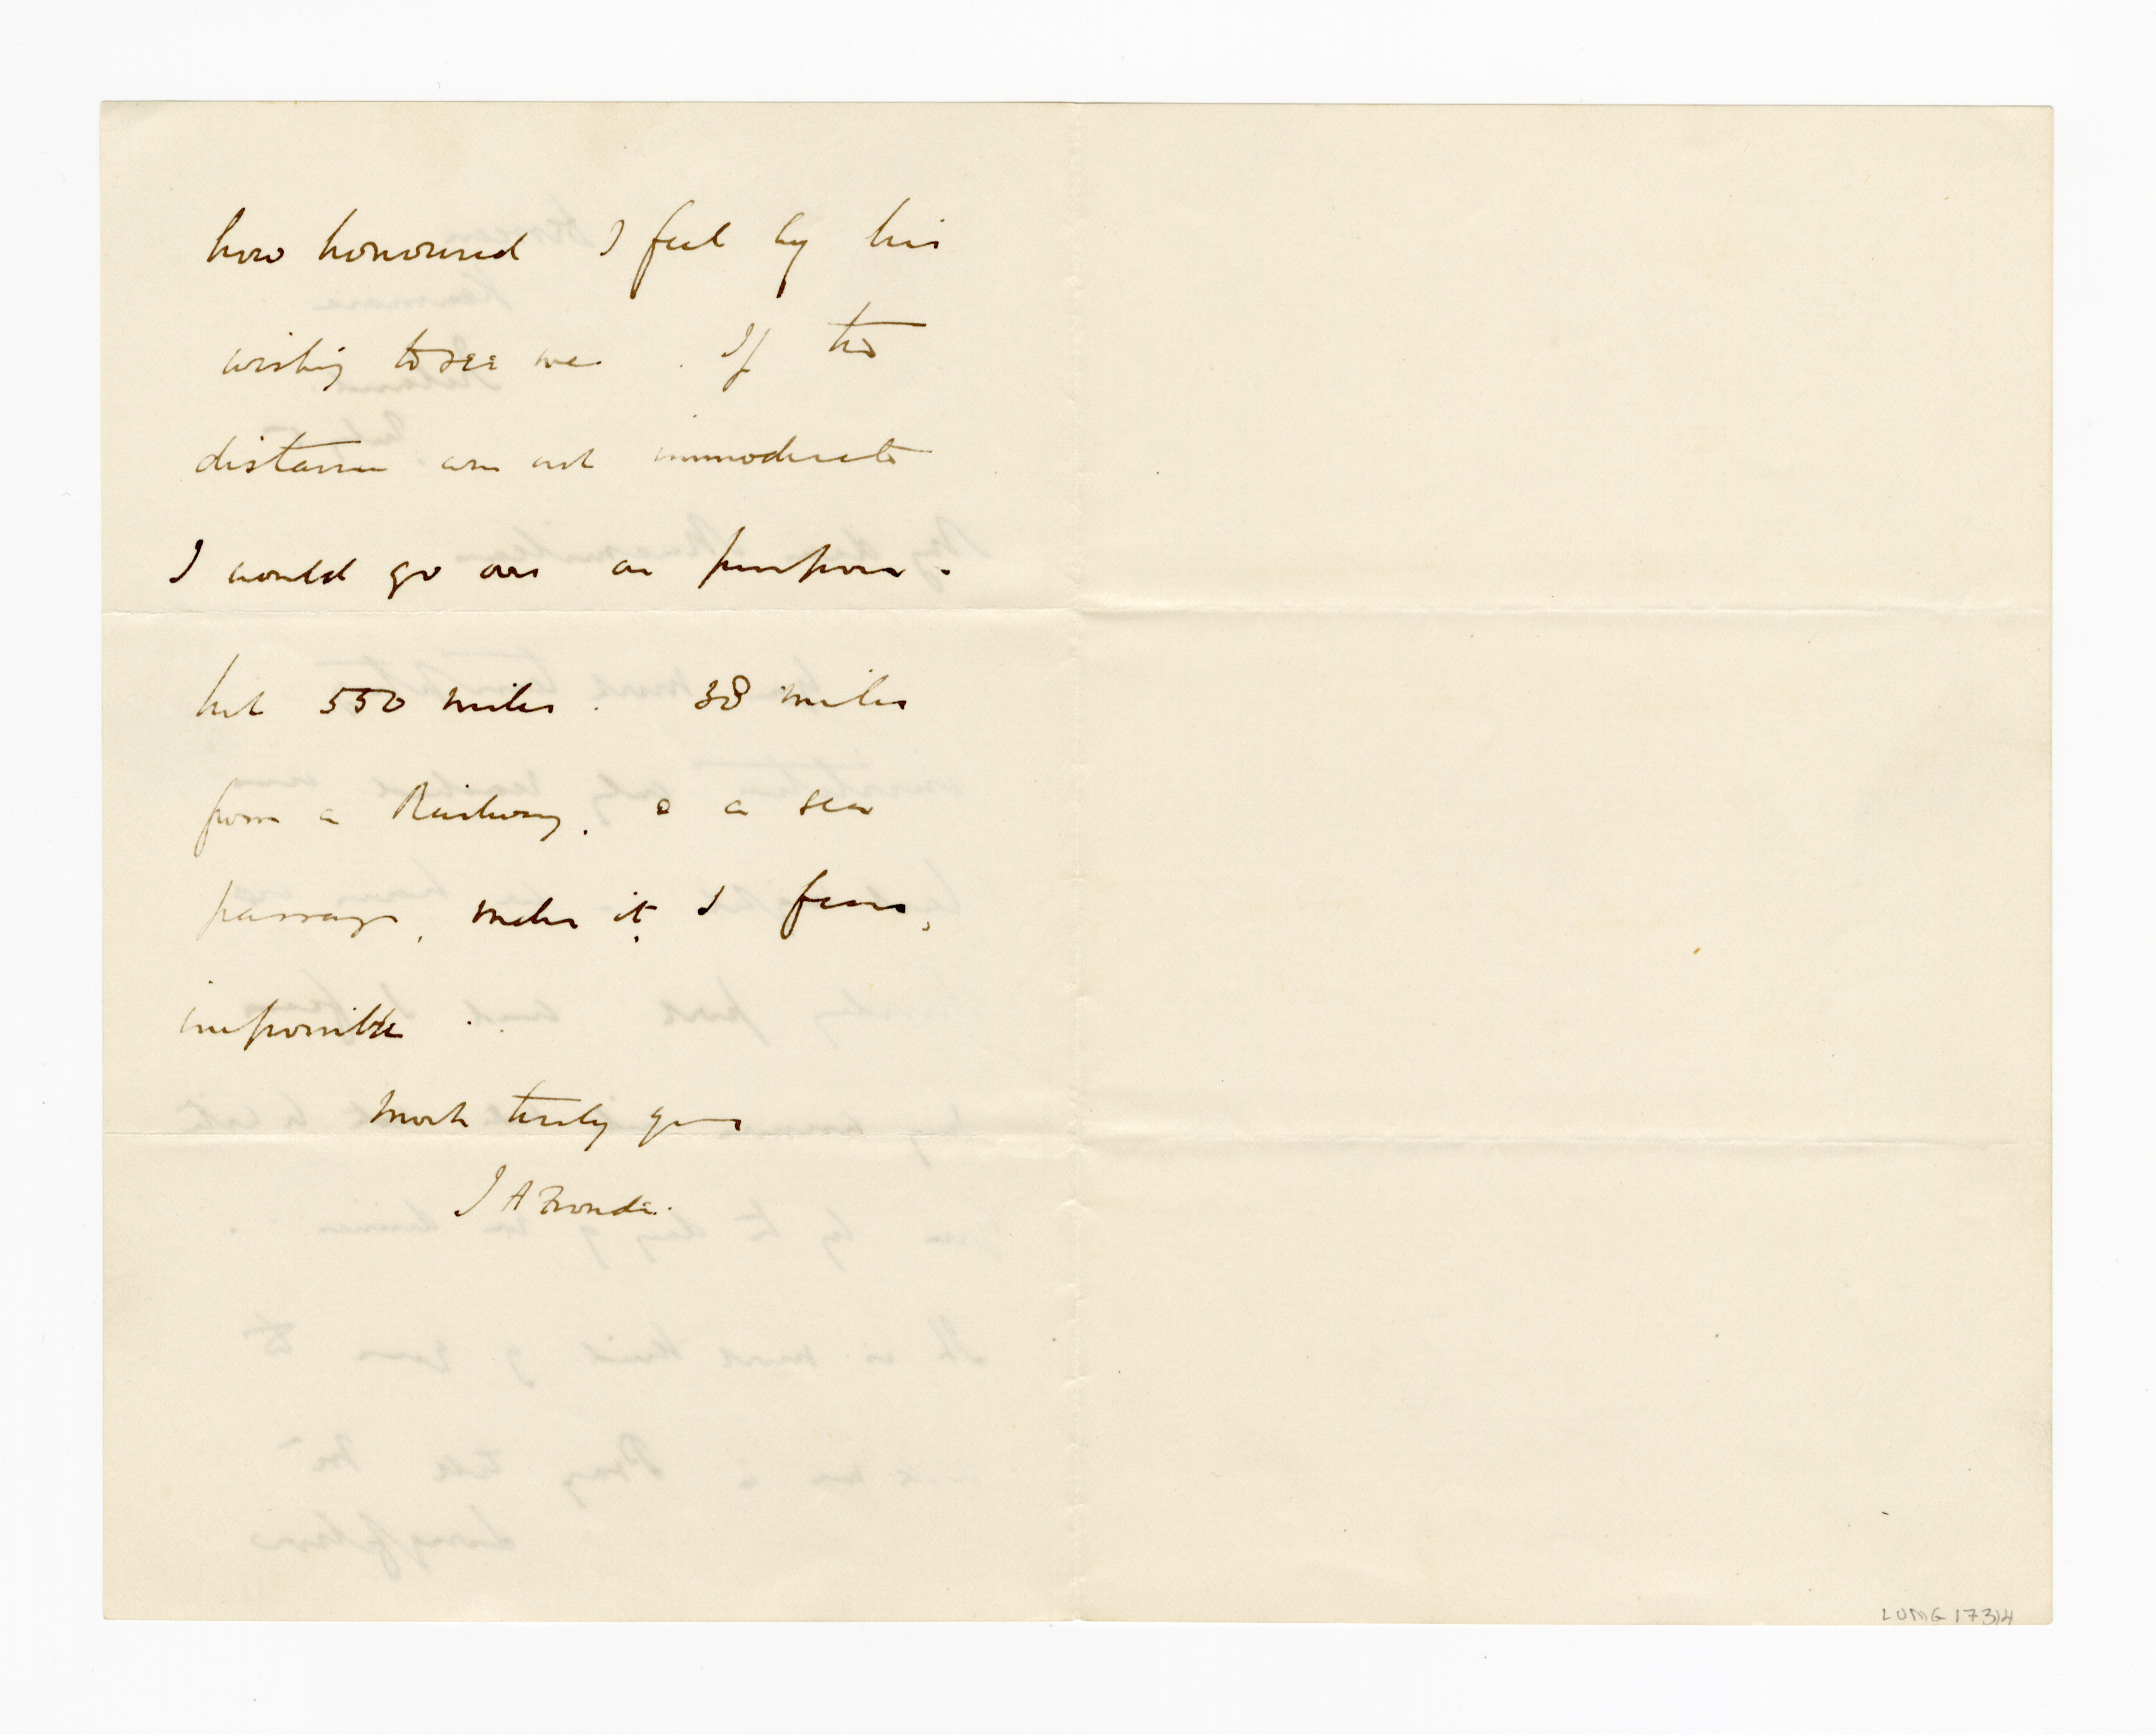 how honoured I feel by his
wishing to see me. If the
distance were not immoderate
I would go over on purpose.
but 550 miles. 38 miles
from a Railway, & a sea
passage, makes it, I fear,
impossible.
Most truly yours
J A Froude.
LONG 17314